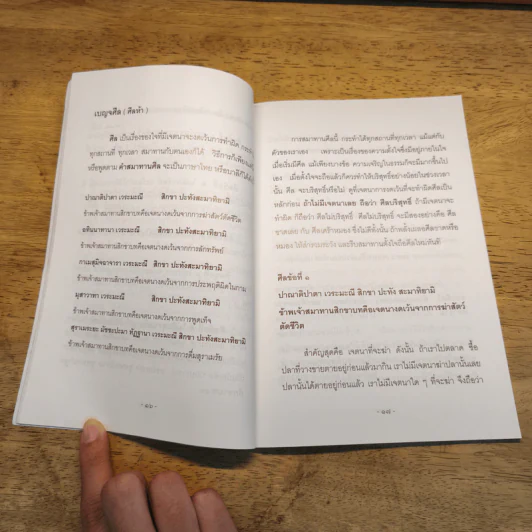 เบญจศีล ( ศีลห้า )
ศีล เป็นเรื่องของใจที่มีเจตนาจะงดเว้นการทำผิด
ทุกสถานที่ ทุกเวลา สมาทานกับตนเองก็ได้ วิธีการก็เพียง
หรือพูดตาม คำสมาทานศีล จะเป็นภาษาไทย หรือบาลีก็ได้
ปาณาติปาตา เวระมะณี สิกขา ปะทังสะมาทิยามิ
ข้าพเจ้าสมาทานสิกขาบทคือเจตนางดเว้นจากการฆ่าสัตว์ตัดชีวิต
อทินนาทานา เวระมะณี สิกขา ปะทังสะมาทิยามิ
ข้าพเจ้าสมาทานสิกขาบทคือเจตนางดเว้นจากการลักทรัพย์
กาเมสุมิจฉาจารา เวระมะณี สิกขา ปะทังสะมาทิยามิ
ข้าพเจ้าสมาทานสิกขาบทคือเจตนางดเว้นจากการประพฤติผิดในกาม
มุสาวาทา เวระมะณี สิกขา ปะทังสะมาทิยามิ
ข้าพเจ้าสมาทานสิกขาบทคือเจตนางดเว้นจากการพูดเท็จ
สุราเมระยะ มัชชะปะมา ทัฏฐานา เวระมะณี สิกขา ปะทังสะมาทิยามิ
ข้าพเจ้าสมาทานสิกขาบทคือเจตนางดเว้นจากการดื่มสุราเมรัย
- ๑๖ -
การสมาทานศีลนี้ กระทำได้ทุกสถานที่ทุกเวลา แม้แต่กับ
ตัวของเราเอง เพราะเป็นเรื่องของความตั้งใจซึ่งมีอยู่ภายในใจ
เมื่อเริ่มมีศีล แม้เพียงบางข้อ ความเจริญในธรรมก็จะมีมากขึ้นไป
เอง เมื่อตั้งใจจะถือแล้วก็ควรทำให้บริสุทธิ์อย่างน้อยในช่วงเวลา
นั้น ศีล จะบริสุทธิ์หรือไม่ ดูที่เจตนาการงดเว้นที่จะทำผิดศีลเป็น
หลักก่อน ถ้าไม่มีเจตนาเลย ถือว่า ศีลบริสุทธิ์ ถ้ามีเจตนาจะ
ทำผิด ก็ถือว่า ศีลไม่บริสุทธิ์ ศีลไม่บริสุทธิ์ จะมีสองอย่างคือ ศีล
ขาดเลย กับ ศีลเศร้าหมอง ซึ่งไม่ดีทั้งนั้น ถ้าพลั้งเผลอศีลขาดหรือ
หมอง ให้ และรับสมาทานตั้งใจถือศีลใหม่ทันที
ศีลข้อที่ ๑
ปาณาติปาตา เวระมะณี สิกขา ปะทัง สะมาทิยามิ
ข้าพเจ้าสมาทานสิกขาบทคือเจตนางดเว้นจากการฆ่าสัตว์
ตัดชีวิต
สำคัญสุดคือ เจตนาที่จะฆ่า ดังนั้น ถ้าเราไปตลาด ซื้อ
ปลาที่วางขายตายอยู่ก่อนแล้วมากิน เราไม่มีเจตนาฆ่าปลานั้นเลย
ปลานั้นได้ตายอยู่ก่อนแล้ว เราไม่มีเจตนาใด ๆ ที่จะฆ่า จึงถือว่า
- ๑๗ -